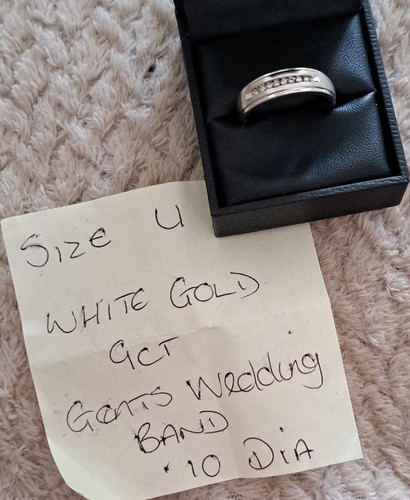 SIZE U
WHITE GOLD
9CT
GENTS Wedding
BAND
.10 DIA